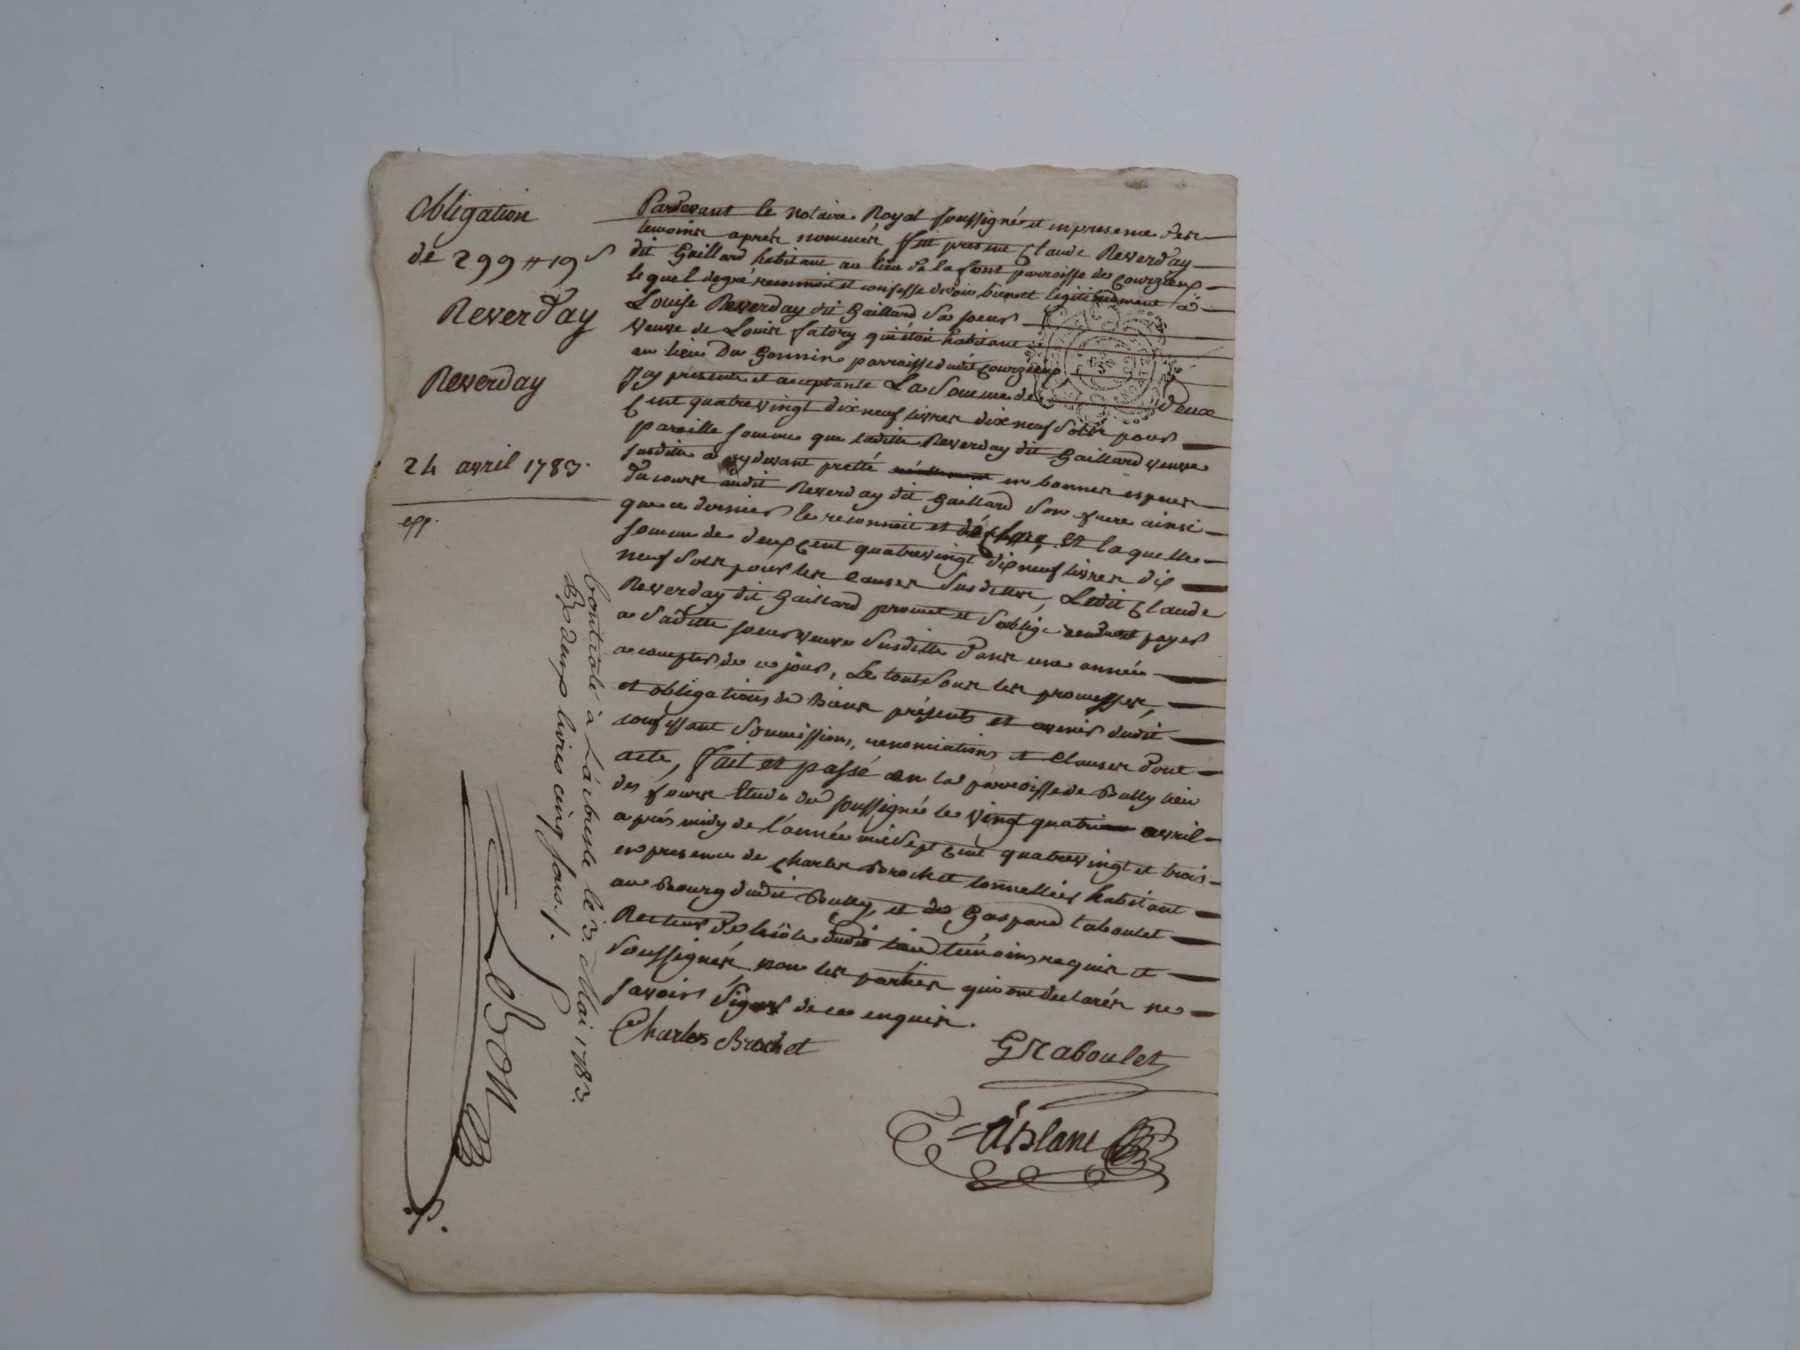 Obligation
de 299 ₶ 19 s
Reverday
Reverday
24 avril 1783.
exp.
Pardevant le notaire Royal soussigné et en presence des
temoins aprés nommés, fut present Claude Reverday
dit Gaillard habitant au lieu de la font parroisse de Courzieux
lequel degré reconnoit et confesse devoir bien et legitimement à
Louise Reverday dit Gaillard sa soeur
veuve de Louis fatory qui étoit habitant
au lieu du Gonnin parroisse dudit Courzieux
icy presente et acceptante La Somme de Deux
Cent quatrevingt dix neuf livres dix neuf sols pour
pareille somme que ladite Reverday dit Gaillard veuve
susditte a cydevant pretté en bonnes especes
du cours audit Reverday dit Gaillard son frere ainsi
que ce dernier le reconnoit et déclare, Et laquelle
somme de deux cent quatrevingt dix neuf livres dix
neuf sols pour les causes susdittes, Ledit Claude
Reverday dit Gaillard promet et s'oblige payer
a saditte soeur veuve susditte dans une année
a compter de ce jour, Le tout sous les promesses,
et obligations de Biens présents et avenir dudit
confessant soumissions, renonciations et clauses Dont
acte, fait et passé en la parroisse de Bully lieu
des fours Etude du soussigné le vingt quatre avril
aprés midy de l'année mil sept cent quatrevingt et trois
en presence de Charles Brochet tonnellier habitant
au Bourg dudit Bully, et de Gaspard taboulet
Recteur d'ecole dudit lieu témoins requis et
soussignés non les parties qui ont declarés ne
savoir signer de ce enquis.
Charles Brochet
GTaboulet
Blanc
Controlé à Larbresle le 3. Mai 1783.
Rx deux livres cinq sous./.